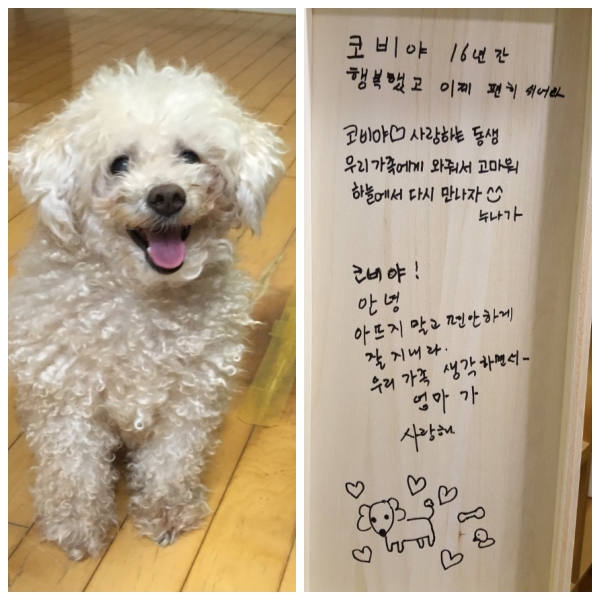 코비야 16년간
행복했고 이제 편히 쉬어라
코비야♡ 사랑하는 동생
우리가족에게 와줘서 고마워
하늘에서 다시 만나자^^
누나가
코비야!
안녕
아프지 말고 편안하게
잘 지내라.
우리 가족 생각하면서~
엄마가
사랑해